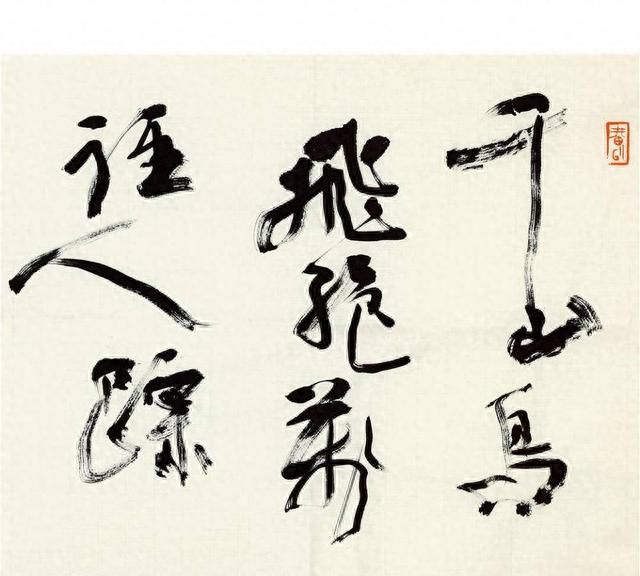 千山鳥
飛絕萬
徑人踪